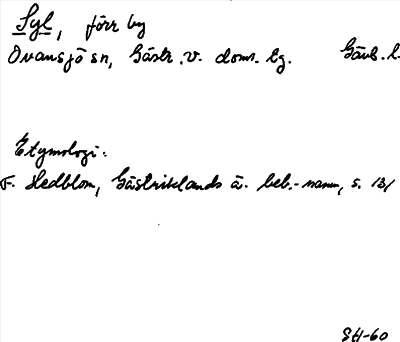 Syl, förr by
Ovansjö sn, Gästr. v. doms. tg. Gävl. l.
Etymologi:
F. Hedblom, Gästriklands ä. beb.-namn, s. 131
SH-60